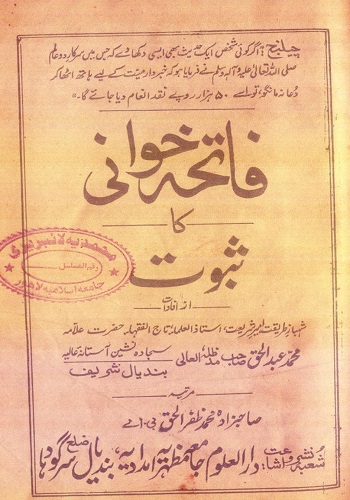 چیلنج: اگر کوئی شخص ایک حدیث بھی ایسی دکھاوے کہ جس میں سرکار دو عالم
صلی اللہ تعالیٰ علیہ وآلہ وسلم نے فرمایا ہو کہ خبردار میت کے لیے ہاتھ اٹھا کر
دعا نہ مانگو تو اسے ۵۰ ہزار روپے نقد انعام دیا جائے گا۔
فاتحہ خوانی
کا
ثبوت
از افادات
شہباز طریقت، امیر شریعت، استاذ العلماء، تاج الفقہاء حضرت علامہ
محمد عبدالحق صاحب مدظلہ العالی سجادہ نشین آستانہ عالیہ بندیال شریف
مرتبہ
صاحبزادہ محمد ظفر الحق بی۔اے
شعبہ نشر و اشاعت دارالعلوم جامعہ مظہریہ امدادیہ، بندیال ضلع سرگودہا
محمدیہ لائبریری
جامعہ اسلامیہ لاہور